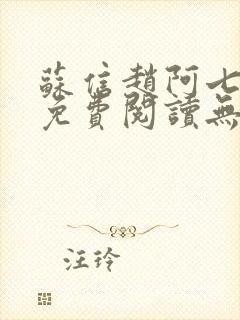 蘇信趙阿七
免費閱讀無
汪玲